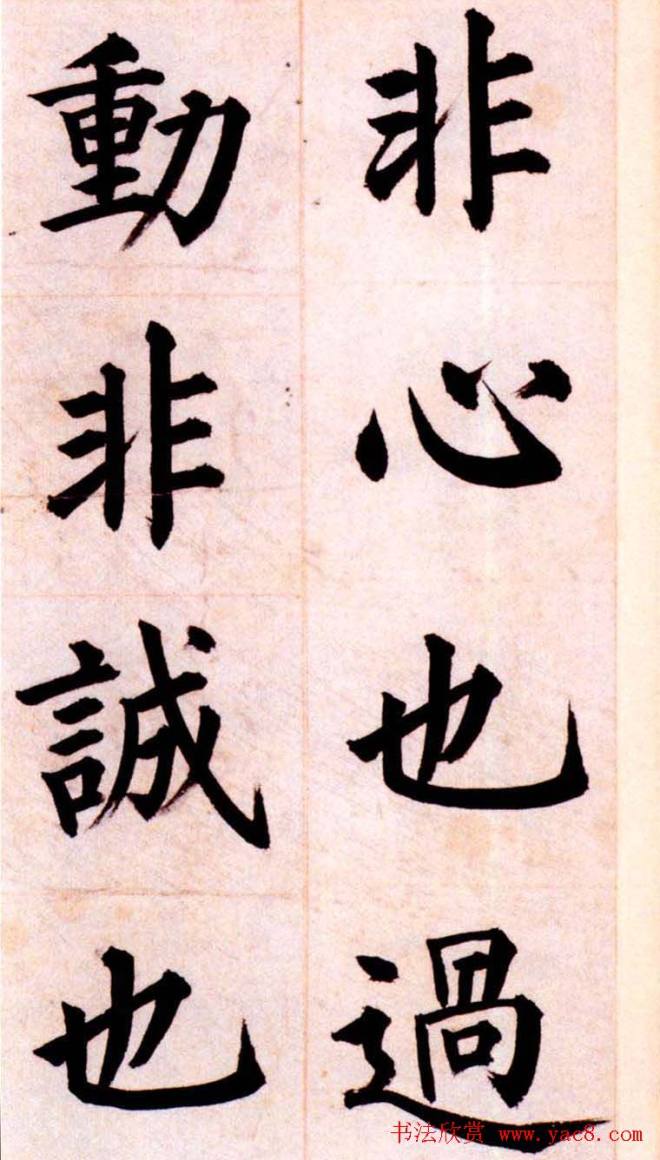 非心也過
動非誠也
书法欣赏 www.yac8.com